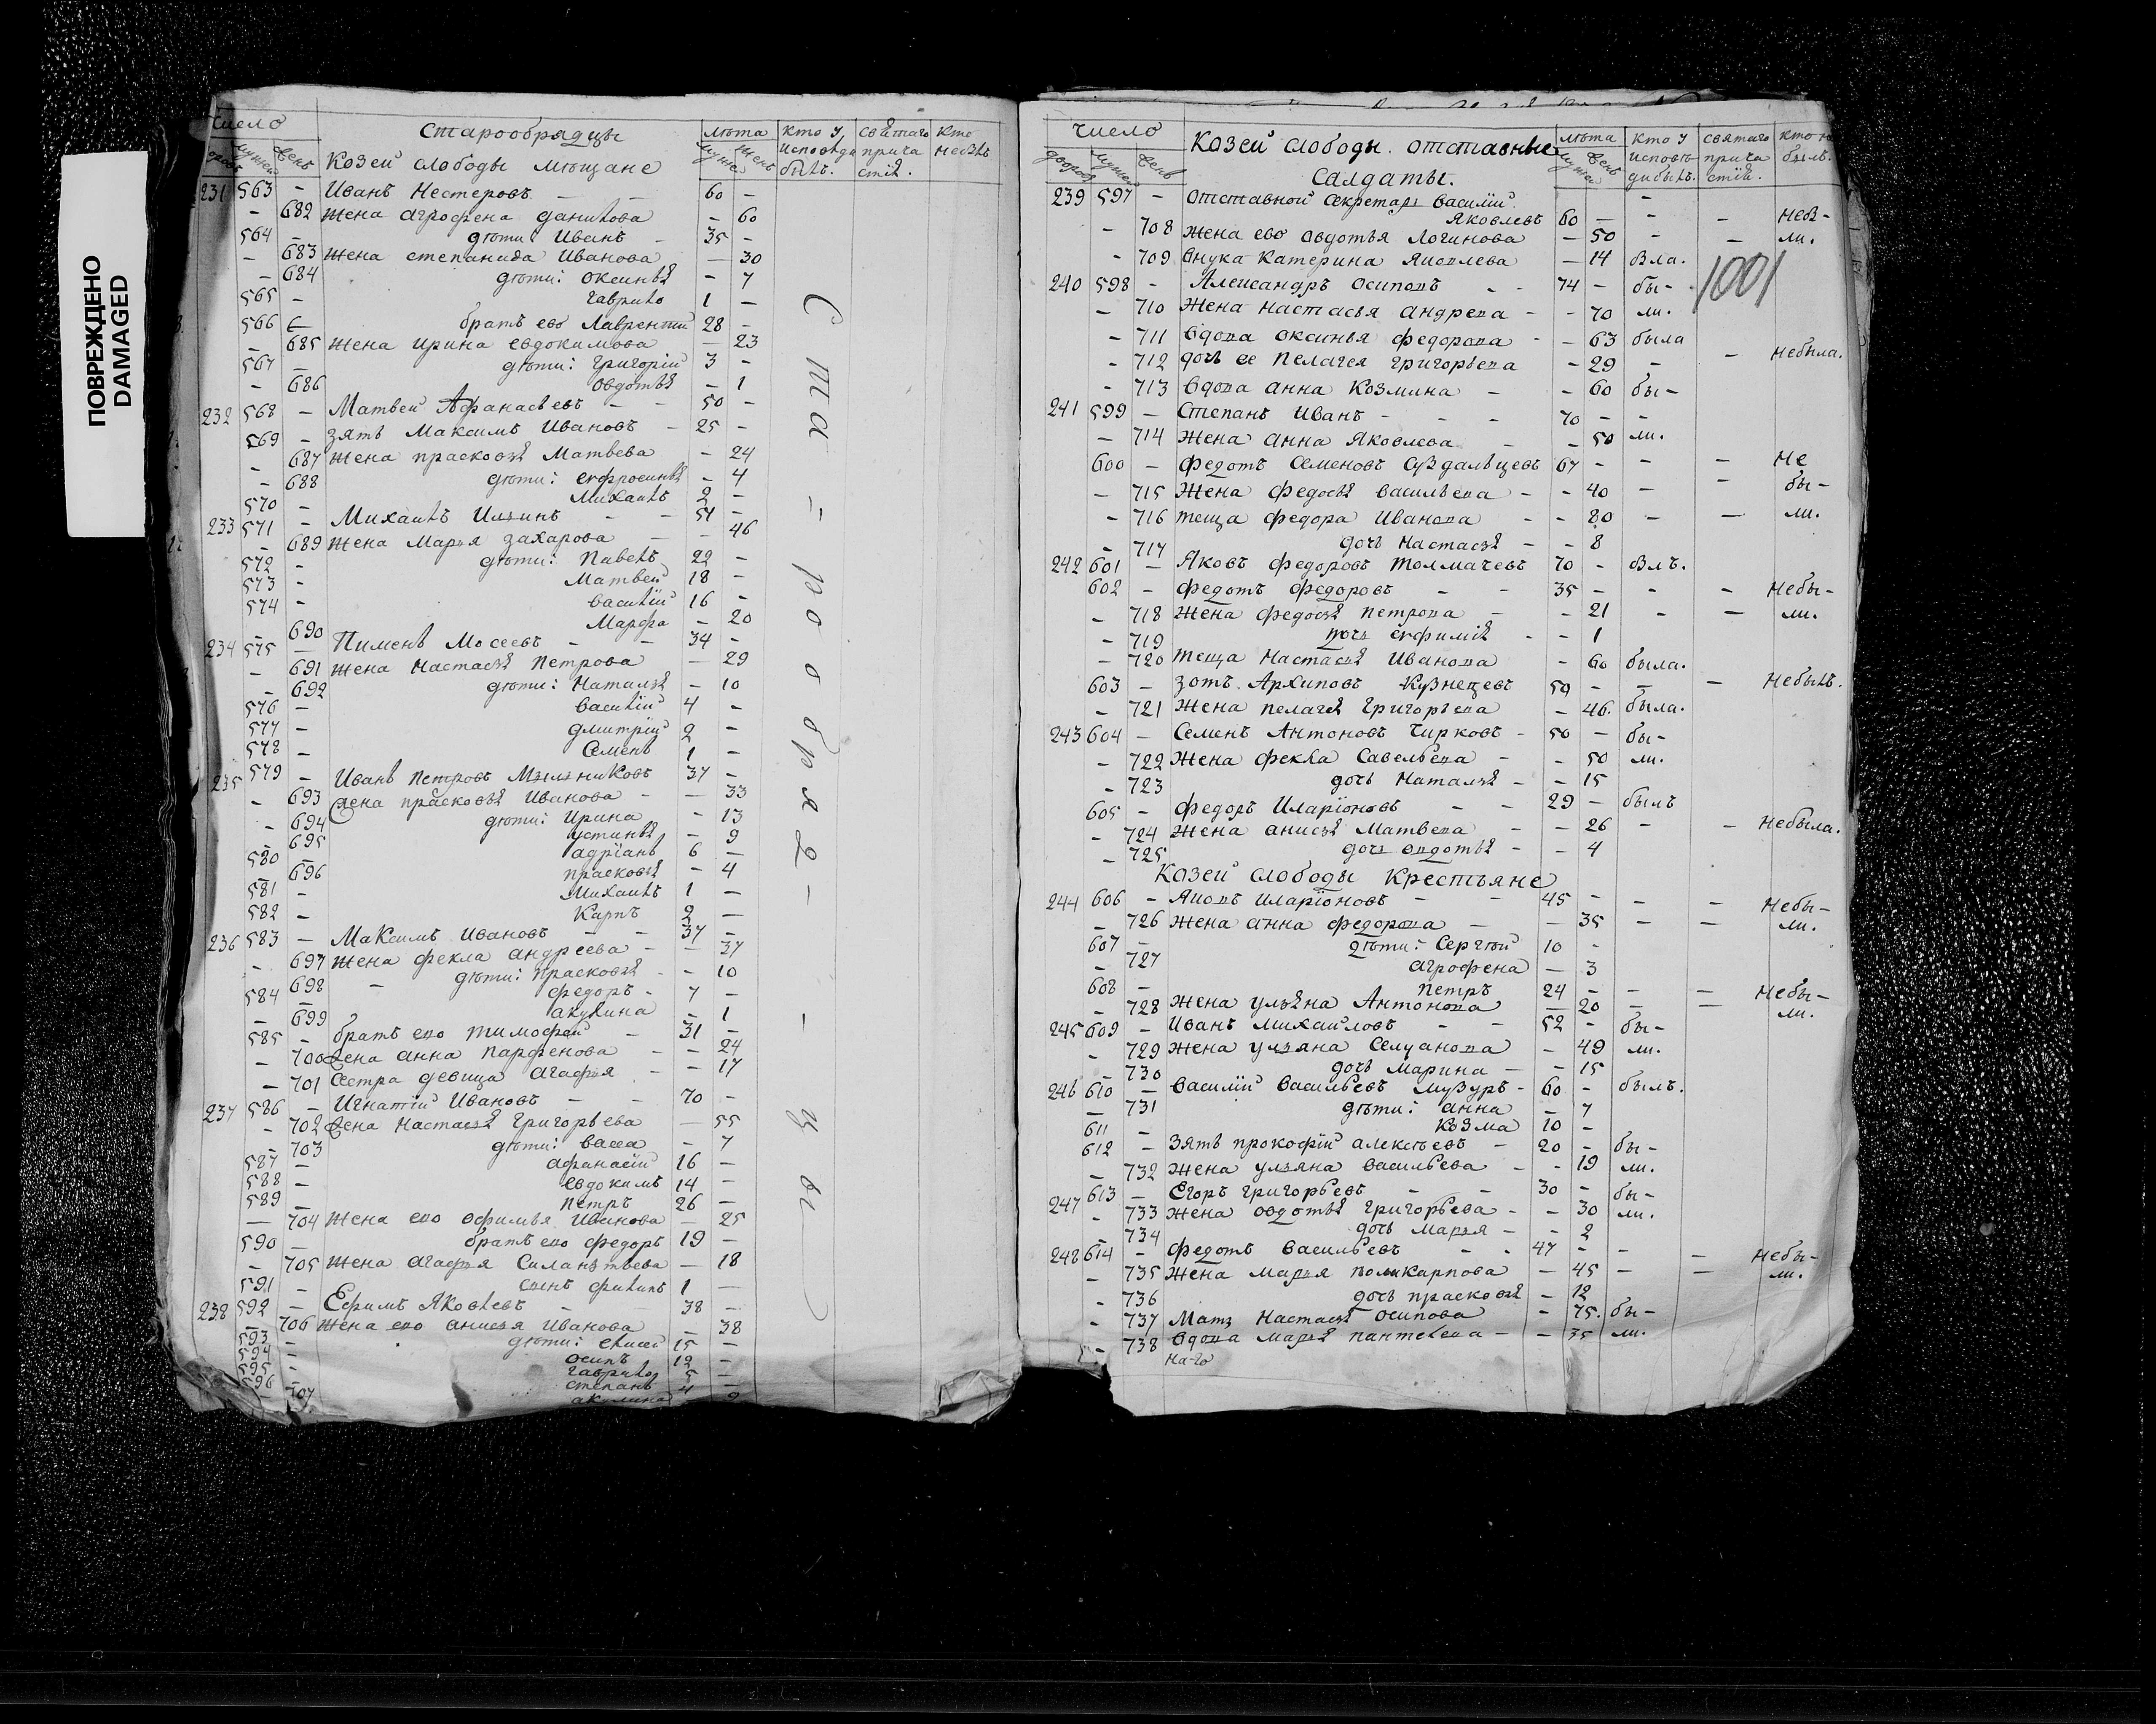 ПОВРЕЖДЕНО
DAMAGED
число Старообрядцы лѣта кто у святаго кто
дворовъ мужей женъ Козей слободы мѣщане мужей женъ исповѣди прича
былъ. стія.
231 563 – Иванъ Нестеровъ – – 60 –
– 682 жена агрофена данилова – 60
564 – дѣти: Иванъ – 35 –
– 683 жена степанида Иванова – 30
– 684 дѣти: оксинья – 7
565 – гаврило 1 –
566 – братъ ево Лаврентий 28 –
– 685 жена ирина евдокимова – 23
567 – дѣти: григорій 3 –
– 686 овдотья – 1
232 568 – Матвей Афанасьевъ – – 50 –
569 – зять Максимъ Ивановъ – 25 –
– 687 жена прасковья Матвева – 24
– 688 дѣти: ефросинья – 4
570 – Михаилъ 2 –
233 571 – Михаилъ Ильинъ – – 51 –
– 689 жена Марья захарова – – 46
572 – дѣти: Павелъ 22 –
573 – Матвей 18 –
574 – василій 16 –
– 690 Марфа – 20
234 575 – Пименъ Мосеевъ – – 34 –
– 691 жена Настасья Петрова – 29
– 692 дѣти: Наталья – 10
576 – василій 4 –
577 – дмитрій 2 –
578 – Семенъ 1 –
235 579 – Иванъ Петровъ Мыльниковъ 37 –
– 693 жена прасковья Иванова – – 33
– 694 дѣти: Ирина – 13
– 695 устинья – 9
580 – адріанъ 6 –
– 696 прасковья – 4
581 – Михаилъ 1 –
582 – Карпъ 2 –
236 583 – Максимъ Ивановъ – – 37 –
– 697 жена фекла андреева – – 37
– 698 – дѣти: прасковья – – 10
584 – федоръ – 7 –
– 699 акулина – 1
585 – братъ ево тимофей – 31 –
– 700 жена анна парфенова – – 24
– 701 сестра девица агафья – – 17
237 586 – Игнатій Ивановъ – – 70 –
– 702 жена Настасья григорьева – 55
– 703 дѣти: васса – 7
587 – афанасій 16 –
588 – евдокимъ 14 –
589 – петръ 26 –
– 704 жена ево офимья Иванова – 25
590 – братъ ево федоръ 19 –
– 705 жена агафья Силантьева – 18
591 – сынъ филипъ 1 –
238 592 – Ефимъ Яковлевъ – – 38 –
– 706 жена ево анисья Иванова – 38
593 – дѣти: елисей 15 –
594 – осипъ 12 –
595 – гаврило 5 –
596 – степанъ 4 –
– 707 акулина – 2
Ста=рообряд––цы
число Козей слободы. отставные лѣта кто у святаго кто не
дворовъ мужей женъ Салдаты. мужей женъ исповѣ прича былъ.
ди былъ. стія.
239 597 – Отставной секретарь василій –
Яковлевъ 60 – – – небы–
– 708 жена ево овдотья логинова – 50 – – ли.
– 709 внука катерина Яковлева – 14 была.
1001
240 598 – Александръ осиповъ – – 74 – бы–
– 710 жена настасья андрева – – 70 ли.
– 711 вдова оксинья федорова – – 63 была
– 712 дочь ее пелагея григорьева – 29 – – небыла.
– 713 вдова анна козмина – – 60 бы–
241 599 – Степанъ Иванъ – – – 70 – –
– 714 жена анна Яковлева – – 50 ли.
600 – федотъ семеновъ суздальцевъ 67 – – – не
– 715 жена федосья васильева – – 40 – – бы–
– 716 теща федора Иванова – – 80 – – ли.
– 717 дочь настасья – – 8
242 601 – Яковъ федоровъ толмачевъ 70 – былъ.
602 – федотъ федоровъ – – 35 – – – небы–
– 718 жена федосья петрова – – 21 – – ли.
– 719 дочь ефимія – – 1
– 720 теща настасья Иванова – 60 была.
603 – зотъ архиповъ кузнецевъ 59 – – – небылъ.
– 721 жена пелагея григорьева – 46. была.
243 604 – Семенъ Антоновъ Чирковъ – 50 – бы–
– 722 жена фекла савельева – – 50 ли.
– 723 дочь наталья – – 15
605 – федоръ Иларіоновъ – – 29 – былъ
– 724 жена анисья Матвева – – 26 – – небыла.
– 725 дочь овдотья – – 4
Козей слободы Крестьяне
244 606 – Яковъ Иларіоновъ – – 45 – – – небы–
– 726 жена анна федорова – – 35 – – ли.
607 – дѣти: Сергѣй 10 –
– 727 агрофена – 3
608 – петръ 24 – – – небы–
– 728 жена ульяна Антонова – 20 – – ли.
245 609 – Иванъ михаиловъ – – 52 – бы–
– 729 жена ульяна Селуанова – 49 ли.
– 730 дочь марина – – 15
246 610 – василій васильевъ музуръ – 60 – былъ.
– 731 дѣти: анна – 7
611 – козма 10 –
612 – зять прокофій алексѣевъ – 20 – бы–
– 732 жена ульяна васильева – – 19 ли.
247 613 – Егоръ григорьевъ – – 30 – бы–
– 733 жена овдотья григорьева – – 30 ли.
– 734 дочь марья – – 2
248 614 – федотъ васильевъ – – 47 – – – небы–
– 735 жена марья поликарпова – 45 – – ли.
– 736 дочь прасковья – 12
– 737 мать настасья осипова – 75. бы–
– 738 вдова марья пантелева – – 35 ли.